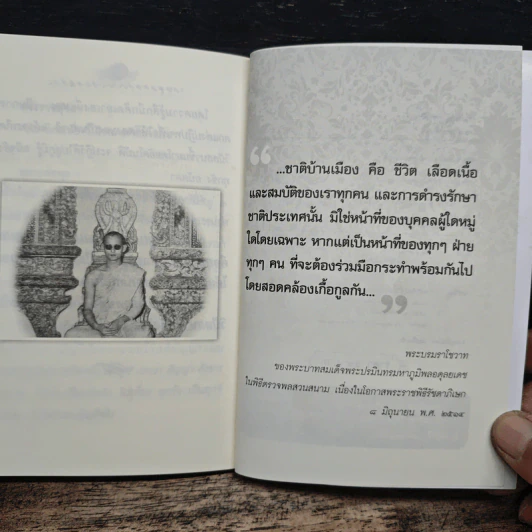 ...ชาติบ้านเมือง คือ ชีวิต เลือดเนื้อ
และสมบัติของเราทุกคน และการดำรงรักษา
ชาติประเทศนั้น มิใช่หน้าที่ของบุคคลผู้ใดหมู่
ใดโดยเฉพาะ หากแต่เป็นหน้าที่ของทุกๆ ฝ่าย
ทุกๆ คน ที่จะต้องร่วมมือกระทำพร้อมกันไป
โดยสอดคล้องเกื้อกูลกัน...
พระบรมราโชวาท
ของพระบาทสมเด็จพระปรมินทรมหาภูมิพลอดุลยเดช
ในพิธีตรวจพลสวนสนาม เนื่องในโอกาสพระราชพิธีรัชดาภิเษก
๘ มิถุนายน พ.ศ. ๒๕๑๔